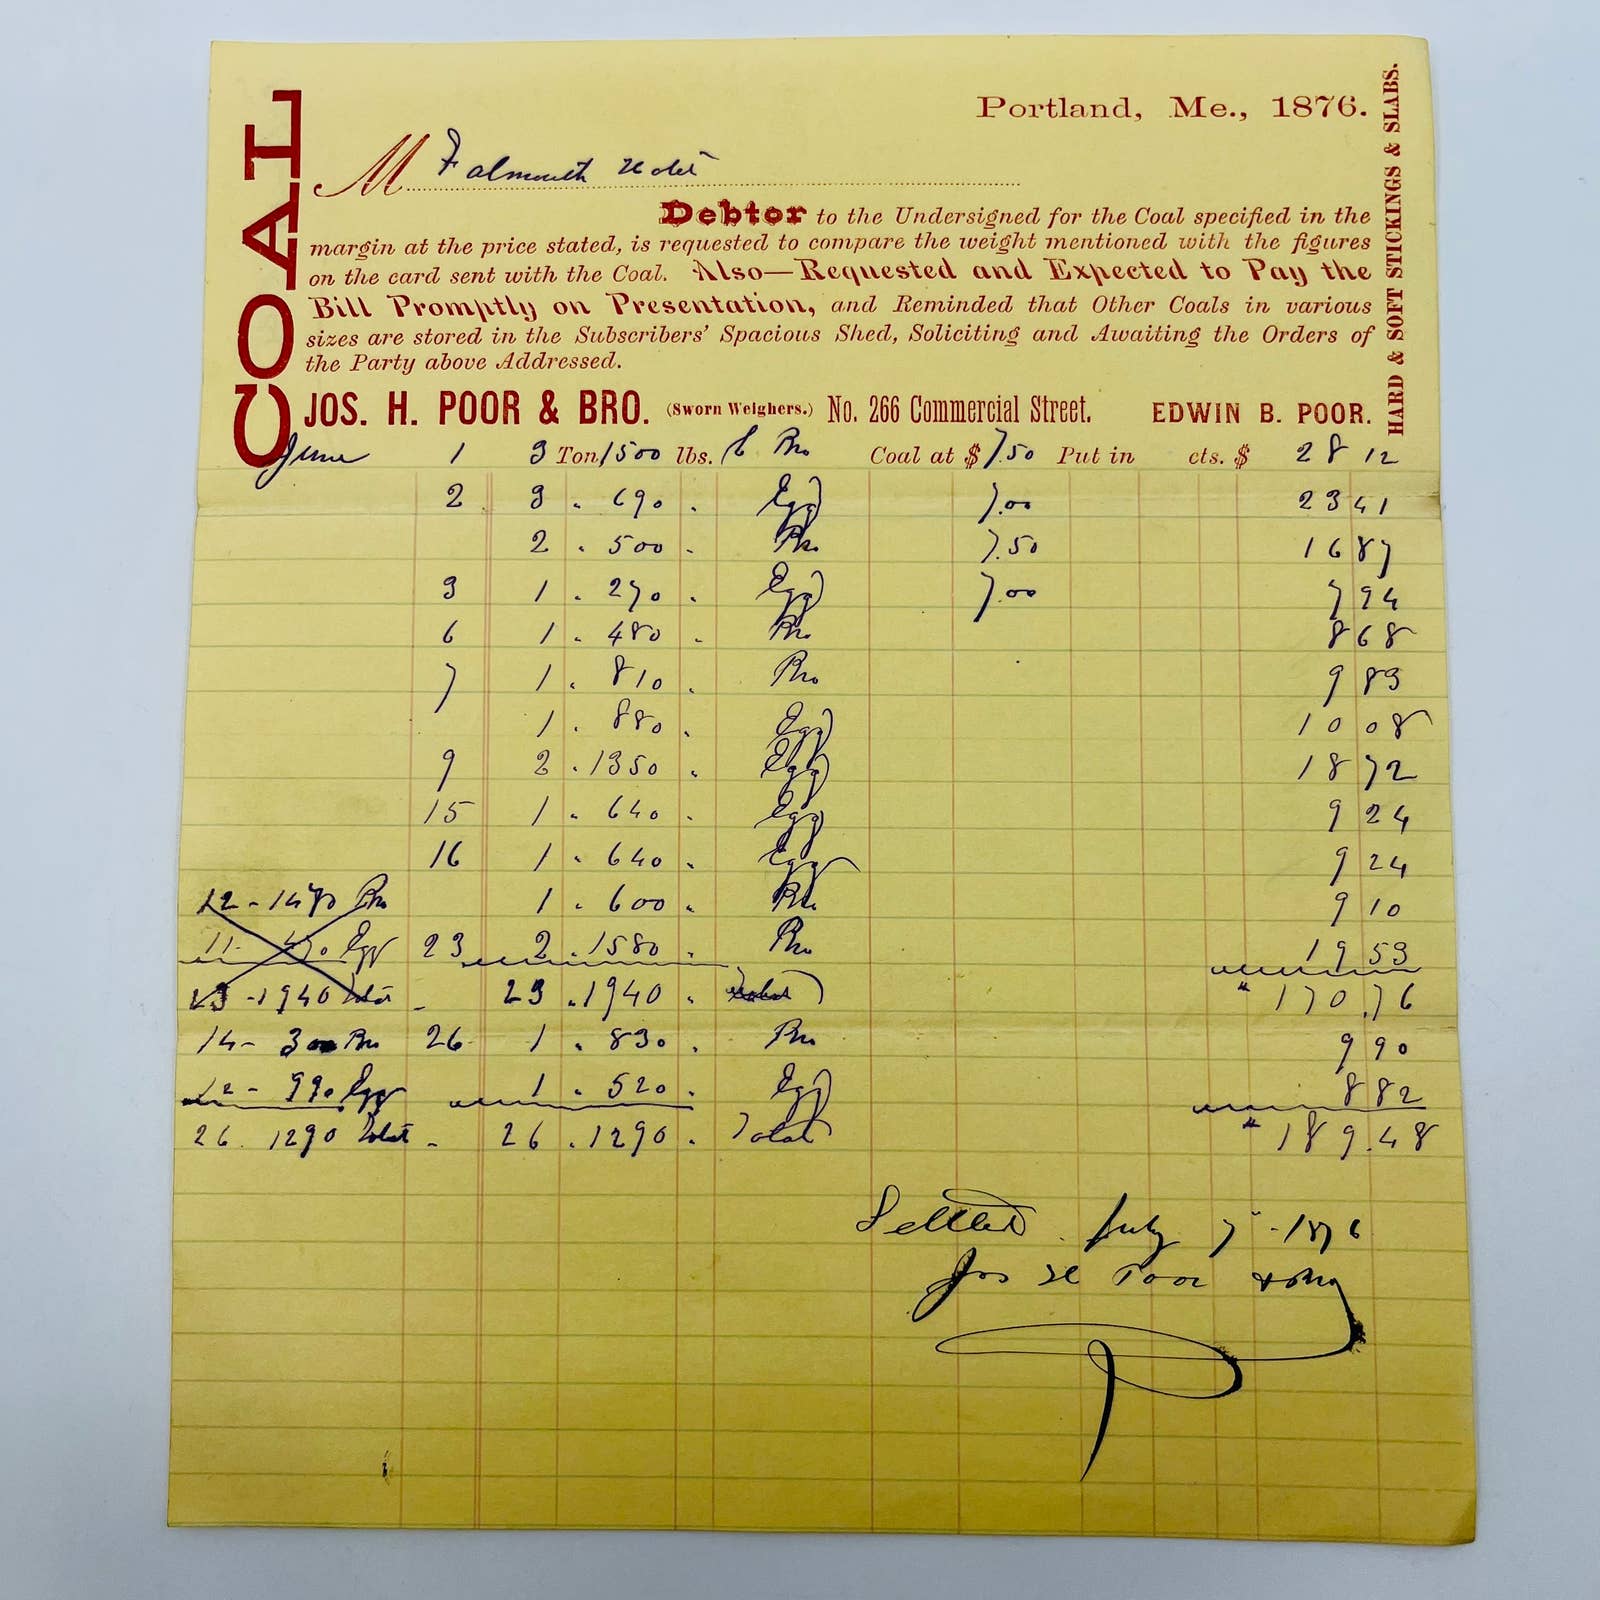 COAL
Portland, Me., 1876.
HARD & SOFT STICKINGS & SLABS.
M Falmouth Hotel
Debtor to the Undersigned for the Coal specified in the
margin at the price stated, is requested to compare the weight mentioned with the figures
on the card sent with the Coal. Also—Requested and Expected to Pay the
Bill Promptly on Presentation, and Reminded that Other Coals in various
sizes are stored in the Subscribers' Spacious Shed, Soliciting and Awaiting the Orders of
the Party above Addressed.
JOS. H. POOR & BRO. (Sworn Weighers.) No. 266 Commercial Street. EDWIN B. POOR.
June 1 3 Ton 1500 lbs. Bro Coal at $ 7.50 Put in cts. $ 28 12
2 3 " 690 " Egg 7.00 23 41
2 " 500 " Bro 7.50 16 87
3 1 " 270 " Egg 7.00 7 94
6 1 " 480 " Bro 8 68
7 1 " 810 " Bro 9 83
1 " 880 " Egg 10 08
9 2 " 1350 " Egg 18 72
15 1 " 640 " Egg 9 24
16 1 " 640 " Egg 9 24
12 - 1470 Bro 1 " 600 " Bro 9 10
11 - 470 Egg 23 2 " 1580 " Bro 19 53
23 - 1940 Total - 23 " 1940 " " 170.76
14 - 300 Bro 26 1 " 830 " Bro 9 90
12 - 990 Egg 1 " 520 " Egg 8 82
26 . 1290 Total - 26 " 1290 " Total " 189.48
Settled July 7" - 1876
Jos H Poor & Bro
P